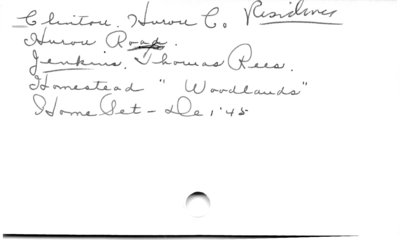 Clinton. Huron Co. Residences
Huron Road.
Jenkins, Thomas Rees.
Homestead "Woodlands"
Home Set - De 1, '45